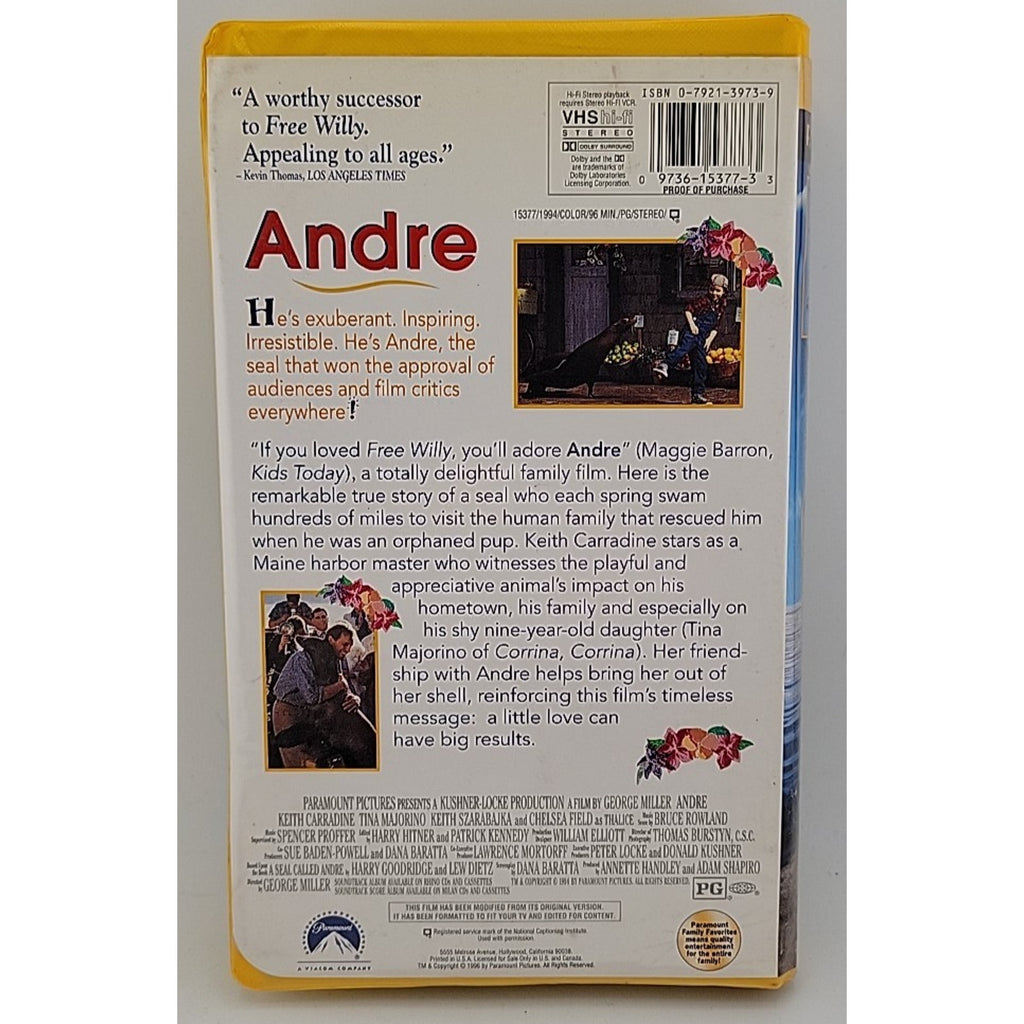 "A worthy successor
to Free Willy.
Appealing to all ages."
- Kevin Thomas, LOS ANGELES TIMES
Hi-Fi Stereo playback
requires Stereo Hi-Fi VCR.
VHS hi-fi
STEREO
DOLBY SURROUND
Dolby and the
are trademarks of
Dolby Laboratories
Licensing Corporation.
ISBN 0-7921-3973-9
0 9736-15377-3 3
PROOF OF PURCHASE
Andre
15377/1994/COLOR/96 MIN./PG/STEREO/
He's exuberant. Inspiring.
Irresistible. He's Andre, the
seal that won the approval of
audiences and film critics
everywhere!
"If you loved Free Willy, you'll adore Andre" (Maggie Barron,
Kids Today), a totally delightful family film. Here is the
remarkable true story of a seal who each spring swam
hundreds of miles to visit the human family that rescued him
when he was an orphaned pup. Keith Carradine stars as a
Maine harbor master who witnesses the playful and
appreciative animal's impact on his
hometown, his family and especially on
his shy nine-year-old daughter (Tina
Majorino of Corrina, Corrina). Her friend-
ship with Andre helps bring her out of
her shell, reinforcing this film's timeless
message: a little love can
have big results.
PARAMOUNT PICTURES PRESENTS A KUSHNER-LOCKE PRODUCTION A FILM BY GEORGE MILLER ANDRE
KEITH CARRADINE TINA MAJORINO KEITH SZARABAJKA and CHELSEA FIELD as THALICE Music Score by BRUCE ROWLAND
Music Supervised by SPENCER PROFFER Edited by HARRY HITNER and PATRICK KENNEDY Production Designer WILLIAM ELLIOTT Director of Photography THOMAS BURSTYN, C.S.C.
Co-Producers SUE BADEN-POWELL and DANA BARATTA Co-Executive Producer LAWRENCE MORTORFF Executive Producers PETER LOCKE and DONALD KUSHNER
Based Upon the Book A SEAL CALLED ANDRE by HARRY GOODRIDGE and LEW DIETZ Screenplay by DANA BARATTA Produced by ANNETTE HANDLEY and ADAM SHAPIRO
Directed by GEORGE MILLER SOUNDTRACK ALBUM AVAILABLE ON RHINO CDs AND CASSETTES TM & COPYRIGHT © 1994 BY PARAMOUNT PICTURES. ALL RIGHTS RESERVED. PG
SOUNDTRACK SCORE ALBUM AVAILABLE ON MILAN CDs AND CASSETTES
THIS FILM HAS BEEN MODIFIED FROM ITS ORIGINAL VERSION.
IT HAS BEEN FORMATTED TO FIT YOUR TV AND EDITED FOR CONTENT.
Registered service mark of the National Captioning Institute.
Used with permission.
5555 Melrose Avenue, Hollywood, California 90038.
Printed in U.S.A. Licensed for Sale Only in U.S. and Canada.
TM & Copyright © 1996 by Paramount Pictures. All Rights Reserved.
Paramount
A VIACOM COMPANY
Paramount
Family Favorites
means quality
entertainment
for the entire
family!